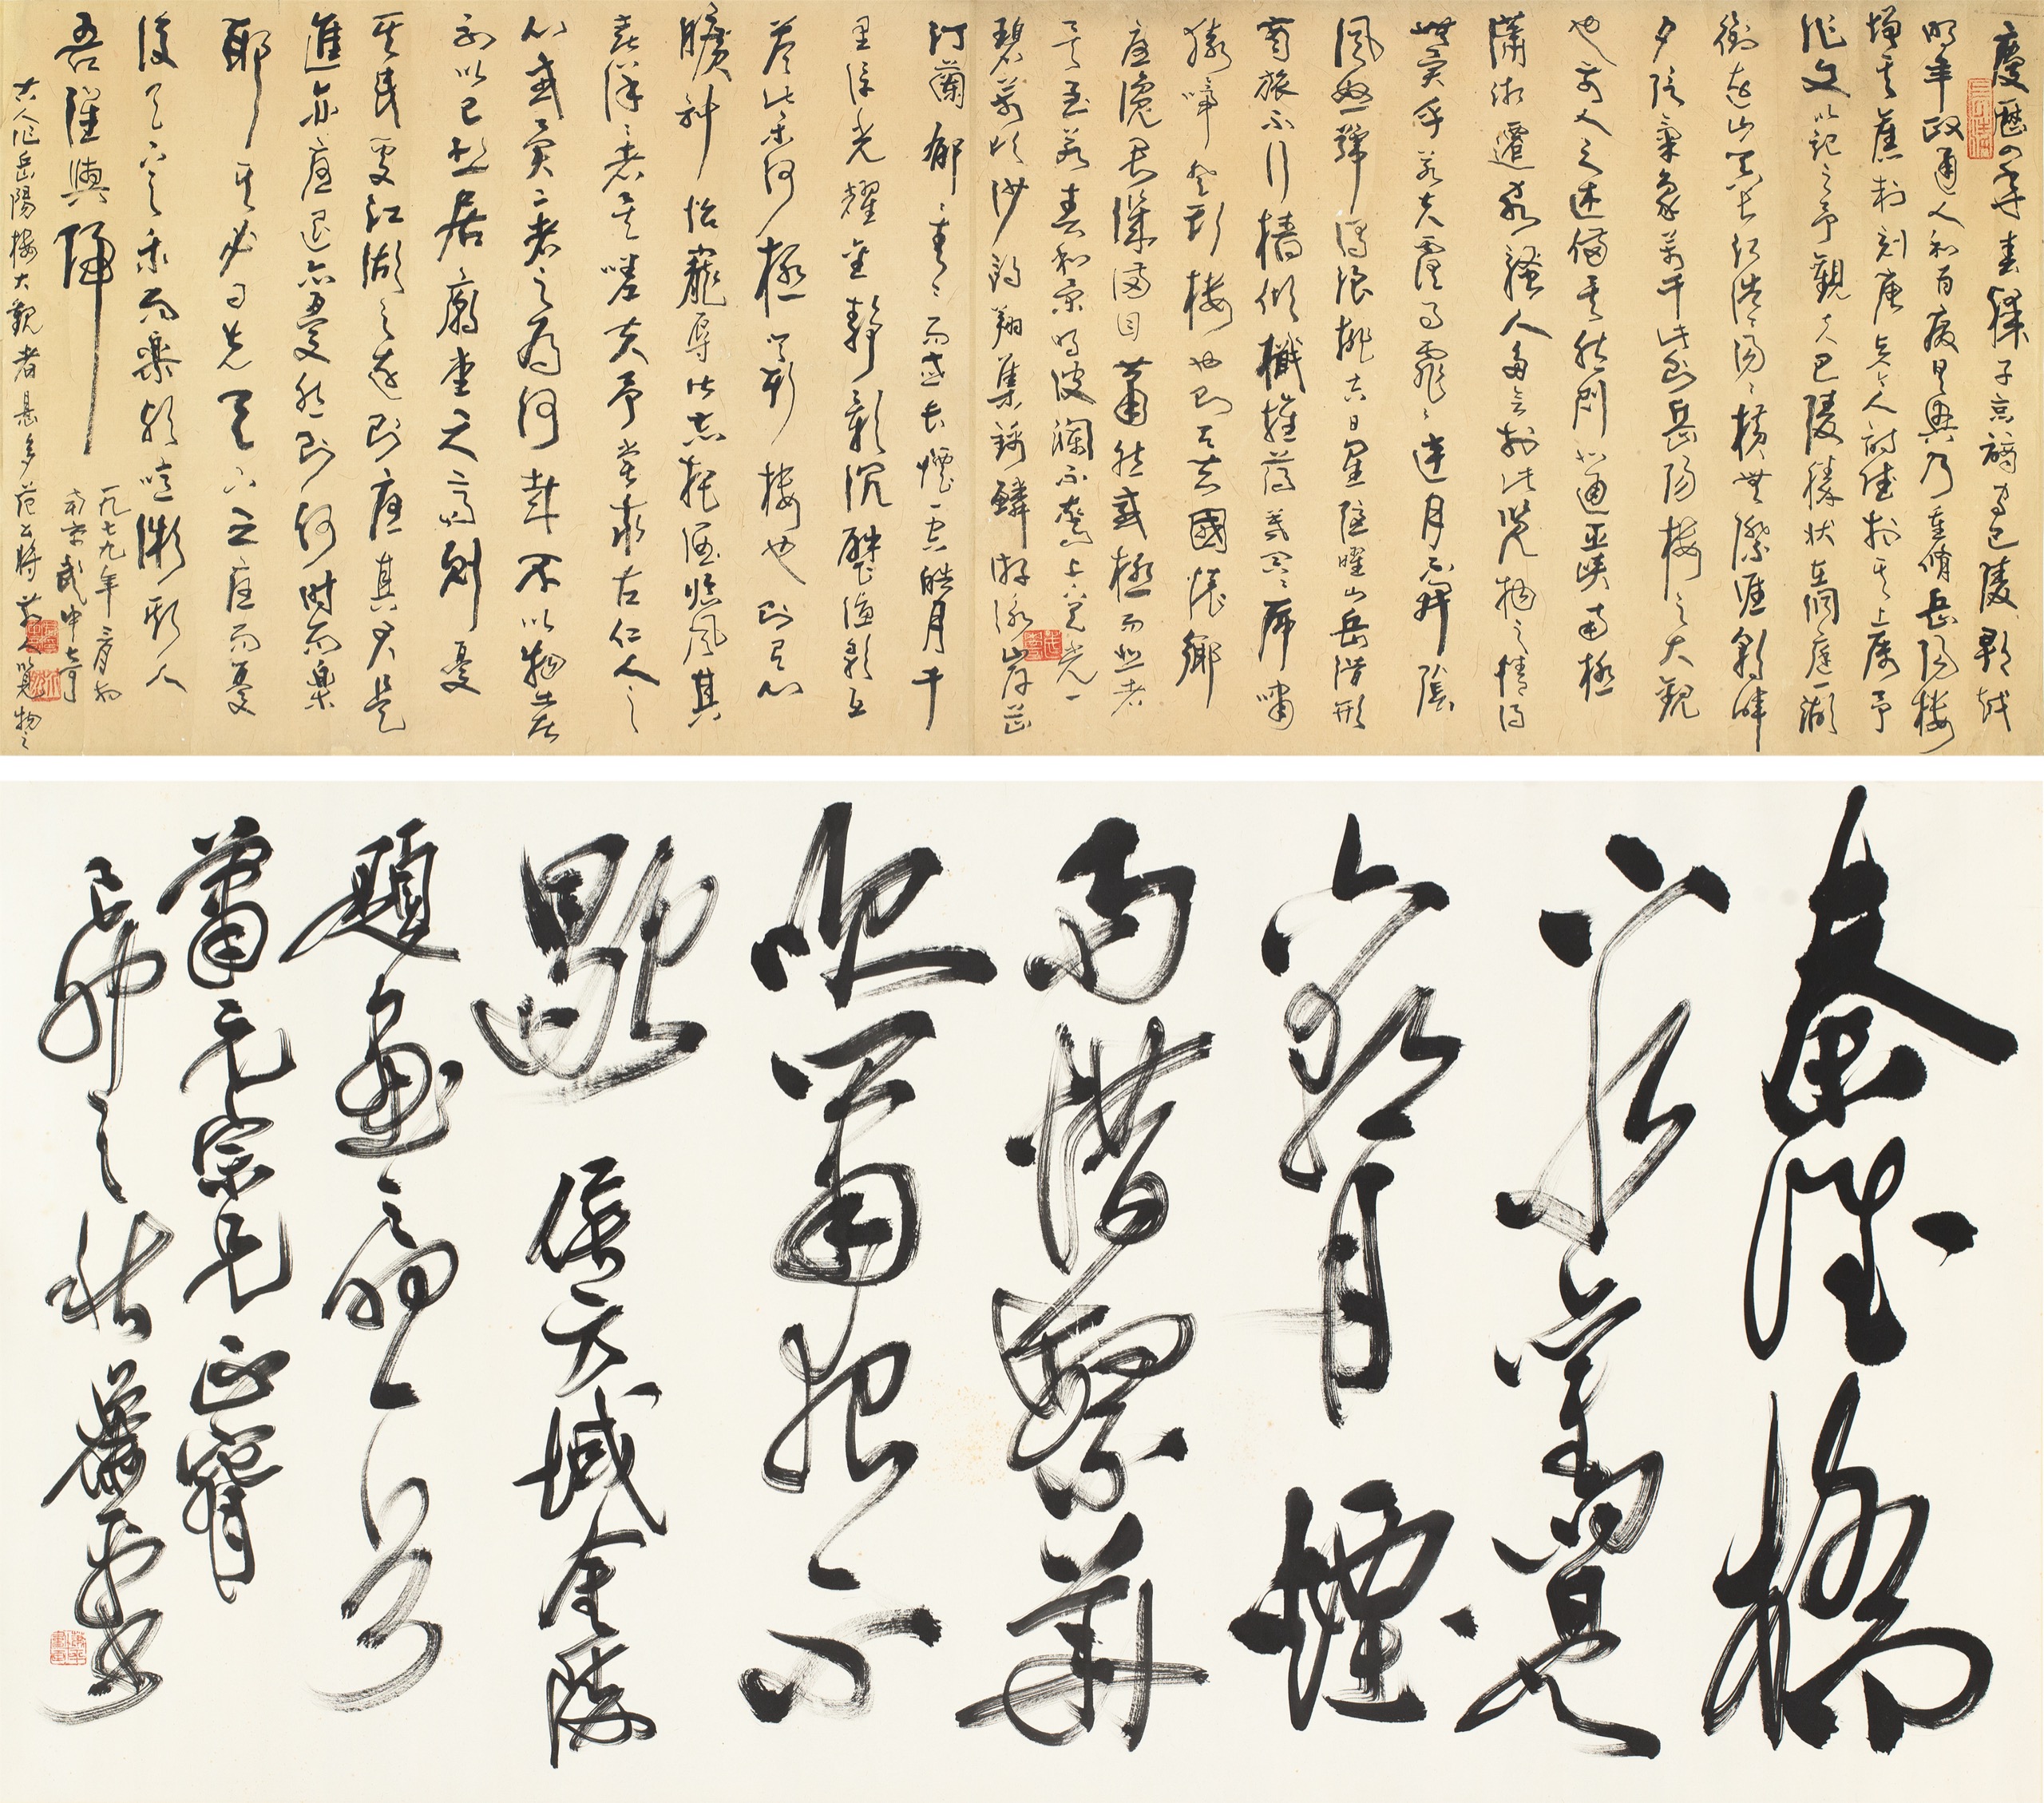 慶歷四年春滕子京謫守巴陵郡越
明年政通人和百廢具興乃重脩岳陽樓
增其舊制刻唐賢今人詩賦於其上屬予
作文以記之予觀夫巴陵勝狀在洞庭一湖
銜遠山吞長江浩浩湯湯橫無際涯朝暉
夕陰氣象萬千此則岳陽樓之大觀
也前人之述備矣然則北通巫峽南極
瀟湘遷客騷人多會於此覽物之情得
無異乎若夫霪雨霏霏連月不開陰
風怒號濁浪排空日星隱曜山岳潛形
商旅不行檣傾檝摧薄暮冥冥虎嘯
猿啼登斯樓也則有去國懷鄉
憂讒畏譏滿目蕭然感極而悲者
矣至若春和景明波瀾不驚上下天光一
碧萬頃沙鷗翔集錦鱗游泳岸芷
汀蘭郁郁青青而或長煙一空皓月千
里浮光耀金靜影沉璧漁歌互
答此樂何極登斯樓也則有心
曠神怡寵辱皆忘把酒臨風其
喜洋洋者矣嗟夫予嘗求古仁人之
心或異二者之為何哉不以物喜
不以己悲居廟堂之高則憂
其民處江湖之遠則憂其君是
進亦憂退亦憂然則何時而樂
耶其必曰先天下之憂而憂
後天下之樂而樂歟噫微斯人
吾誰與歸
一九七九年二月於
南京武中奇
古人作岳陽樓大觀者甚多范公將前人覽物之
秦淮橋
下水舊是
六朝月煙
雨惜繁華
吹簫夜不
歇 侯方域金陵
題畫詩一首
蕭元宗兄正腕
己卯之秋 平書